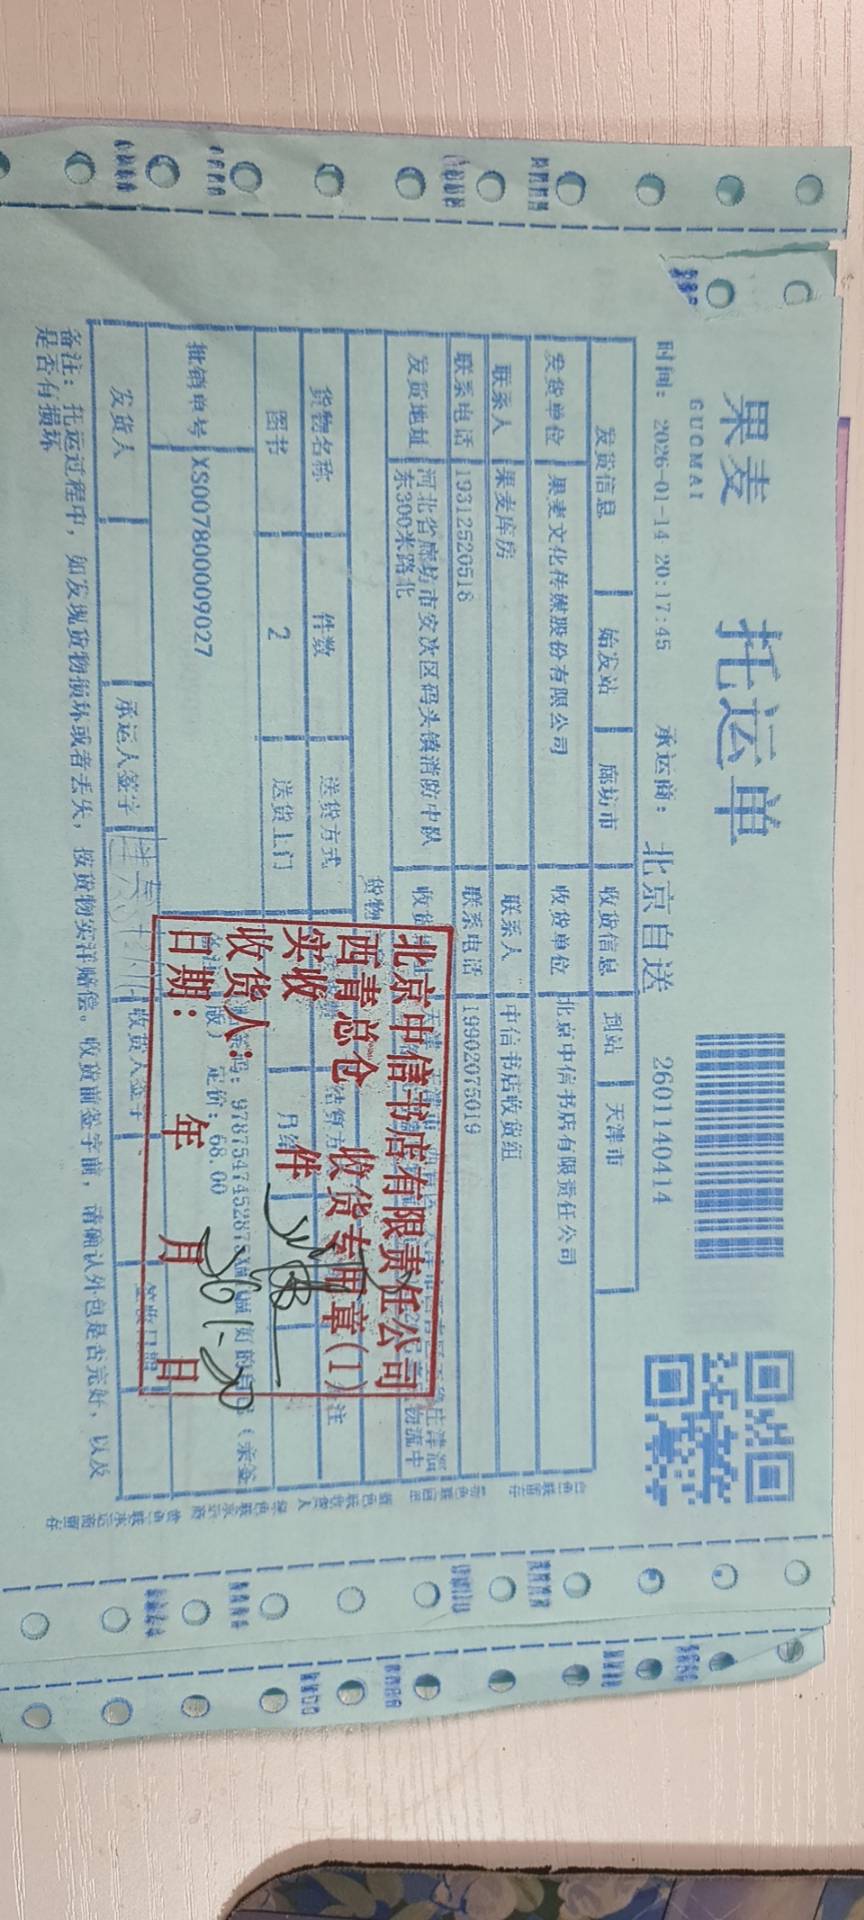 果麦 托运单
GUOMAI
时间: 2026-01-14 20:17:45 承运商: 北京自送 2601140414
发货信息 始发站 廊坊市 收货信息 到站 天津市
发货单位 果麦文化传媒股份有限公司 收货单位 北京中信书店有限责任公司
联系人 果麦库房 联系人 中信书店收货组
联系电话 19312520518 联系电话 19902075019
发货地址 河北省廊坊市安次区码头镇消防中队
东300米路北
货物
货物名称 件数 送货方式
图书 2 送货上门
批销单号 XS007800009027
定价: 68.00
发货人 承运人签字 收货人签字
备注: 托运过程中, 如发现货物损坏或者丢失, 按货物实洋赔偿。收货前签字前, 请确认外包是否完好, 以及
是否有损坏
北京中信书店有限责任公司
西青总仓 收货专用章(1)
实收 件
收货人:
日期: 年 月 日